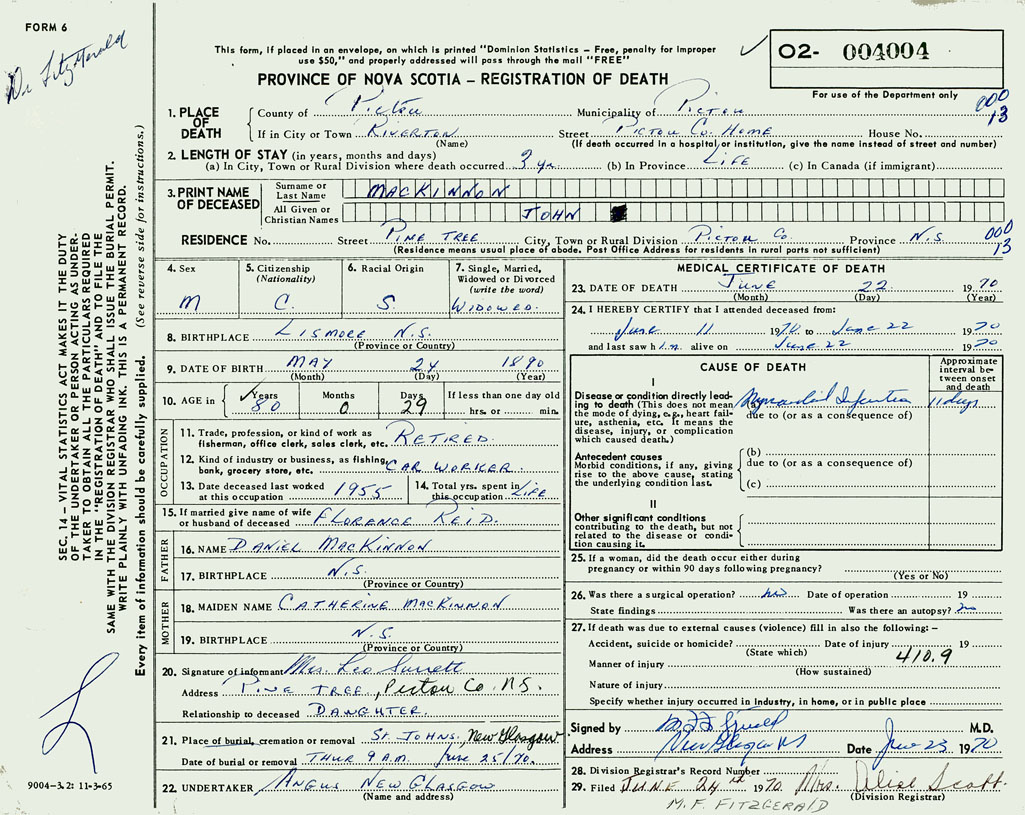 FORM 6
Dr Fitzgerald
This form, if placed in an envelope, on which is printed "Dominion Statistics – Free, penalty for improper
use $50," and properly addressed will pass through the mail "FREE"
PROVINCE OF NOVA SCOTIA – REGISTRATION OF DEATH
02- 004004
For use of the Department only
000
13
1. PLACE OF DEATH
County of Pictou Municipality of Pictou
If in City or Town Riverton Street Pictou Co. Home House No.
(Name) (If death occurred in a hospital or institution, give the name instead of street and number)
2. LENGTH OF STAY (in years, months and days)
(a) In City, Town or Rural Division where death occurred 3 yr. (b) In Province Life (c) In Canada (if immigrant)
3. PRINT NAME OF DECEASED
Surname or Last Name MACKINNON
All Given or Christian Names JOHN
RESIDENCE No. Street Pine Tree City, Town or Rural Division Pictou Co. Province N.S.
000
13
(Residence means usual place of abode. Post Office Address for residents in rural parts not sufficient)
4. Sex
M
5. Citizenship
(Nationality)
C.
6. Racial Origin
S.
7. Single, Married,
Widowed or Divorced
(write the word)
Widowed.
8. BIRTHPLACE Lismore N.S.
(Province or Country)
9. DATE OF BIRTH May 24 1890
(Month) (Day) (Year)
10. AGE in Years 80 Months 0 Days 29 If less than one day old
hrs. or min.
OCCUPATION
11. Trade, profession, or kind of work as
fisherman, office clerk, sales clerk, etc. Retired.
12. Kind of industry or business, as fishing,
bank, grocery store, etc. Car Worker.
13. Date deceased last worked
at this occupation 1955
14. Total yrs. spent in
this occupation Life
15. If married give name of wife
or husband of deceased Florence Reid.
FATHER
16. NAME Daniel MacKinnon
17. BIRTHPLACE N.S.
(Province or Country)
MOTHER
18. MAIDEN NAME Catherine MacKinnon
19. BIRTHPLACE N.S.
(Province or Country)
20. Signature of informant Mrs. Leo
Address Pine Tree, Pictou Co. N.S.
Relationship to deceased Daughter.
21. Place of burial, cremation or removal St. Johns, New Glasgow
Date of burial or removal Thur 9 A.M. June 25/70.
22. UNDERTAKER Angus New Glasgow
(Name and address)
MEDICAL CERTIFICATE OF DEATH
23. DATE OF DEATH June 22 1970
(Month) (Day) (Year)
24. I HEREBY CERTIFY that I attended deceased from:
June 11 1970 to June 22 1970
and last saw him alive on June 22 1970
CAUSE OF DEATH
Approximate
interval be-
tween onset
and death
I
Disease or condition directly lead-
ing to death (This does not mean
the mode of dying, e.g., heart fail-
ure, asthenia, etc. It means the
disease, injury, or complication
which caused death.)
Myocardial Infarction 11 days
due to (or as a consequence of)
Antecedent causes
Morbid conditions, if any, giving
rise to the above cause, stating
the underlying condition last.
(b)
due to (or as a consequence of)
(c)
II
Other significant conditions
contributing to the death, but not
related to the disease or condi-
tion causing it.
25. If a woman, did the death occur either during
pregnancy or within 90 days following pregnancy?
(Yes or No)
26. Was there a surgical operation? no Date of operation 19
State findings Was there an autopsy? no
27. If death was due to external causes (violence) fill in also the following: –
Accident, suicide or homicide? Date of injury 19
(State which) 410.9
Manner of injury
(How sustained)
Nature of injury
Specify whether injury occurred in industry, in home, or in public place
Signed by M.D.
Address New Glasgow NS Date June 23 1970
28. Division Registrar's Record Number
29. Filed June 24th 1970 Mrs. Alise Scott.
(Division Registrar)
M. F. FITZGERALD
SEC. 14 – VITAL STATISTICS ACT MAKES IT THE DUTY
OF THE UNDERTAKER OR PERSON ACTING AS UNDER-
TAKER TO OBTAIN ALL THE PARTICULARS REQUIRED
IN THE "REGISTRATION OF DEATH" AND TO FILE THE
SAME WITH THE DIVISION REGISTRAR WHO SHALL ISSUE THE BURIAL PERMIT.
WRITE PLAINLY WITH UNFADING INK. THIS IS A PERMANENT RECORD.
Every item of information should be carefully supplied. (See reverse side for instructions.)
9004-3.2: 11-3-65